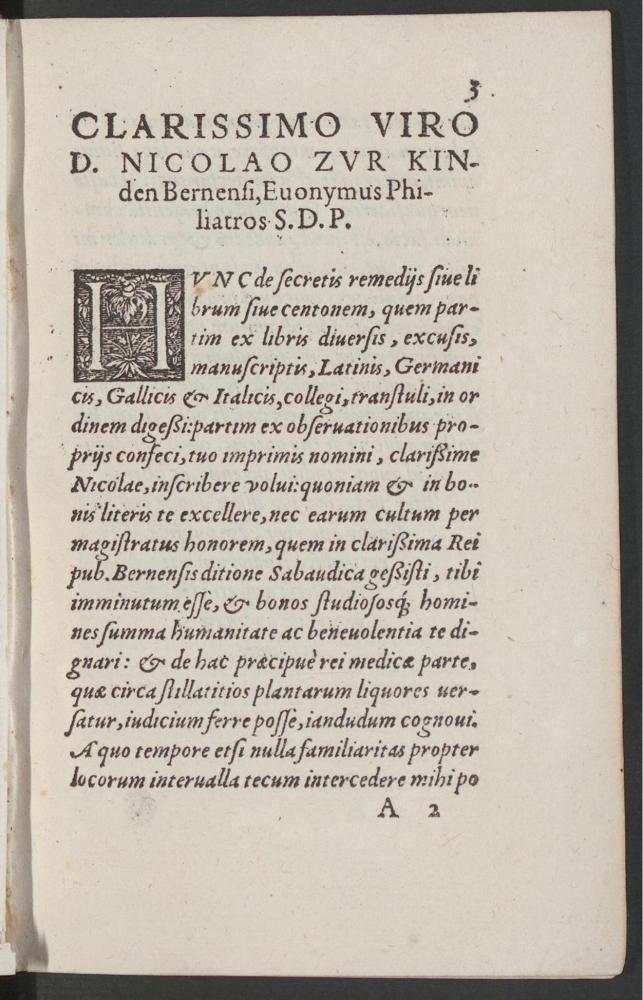 3
CLARISSIMO VIRO
D. NICOLAO ZVR KIN-
den Bernenſi, Euonymus Phi-
liatros S. D. P.
HVNC de ſecretis remedijs ſiue li
brum ſiue centonem, quem par-
tim ex libris diuerſis, excuſis,
manuſcriptis, Latinis, Germani
cis, Gallicis & Italicis, collegi, tranſtuli, in or
dinem digeßi: partim ex obſeruationibus pro-
prijs confeci, tuo imprimis nomini, clarißime
Nicolae, inſcribere volui: quoniam & in bo-
nis literis te excellere, nec earum cultum per
magiſtratus honorem, quem in clarißima Rei
pub. Bernenſis ditione Sabaudica geßiſti, tibi
imminutum eſſe, & bonos ſtudioſosq́; homi-
nes ſumma humanitate ac beneuolentia te di-
gnari: & de hac præcipuè rei medicæ parte,
quæ circa ſtillatitios plantarum liquores uer-
ſatur, iudicium ferre poſſe, iandudum cognoui.
A quo tempore etſi nulla familiaritas propter
locorum interualla tecum intercedere mihi po
A 2